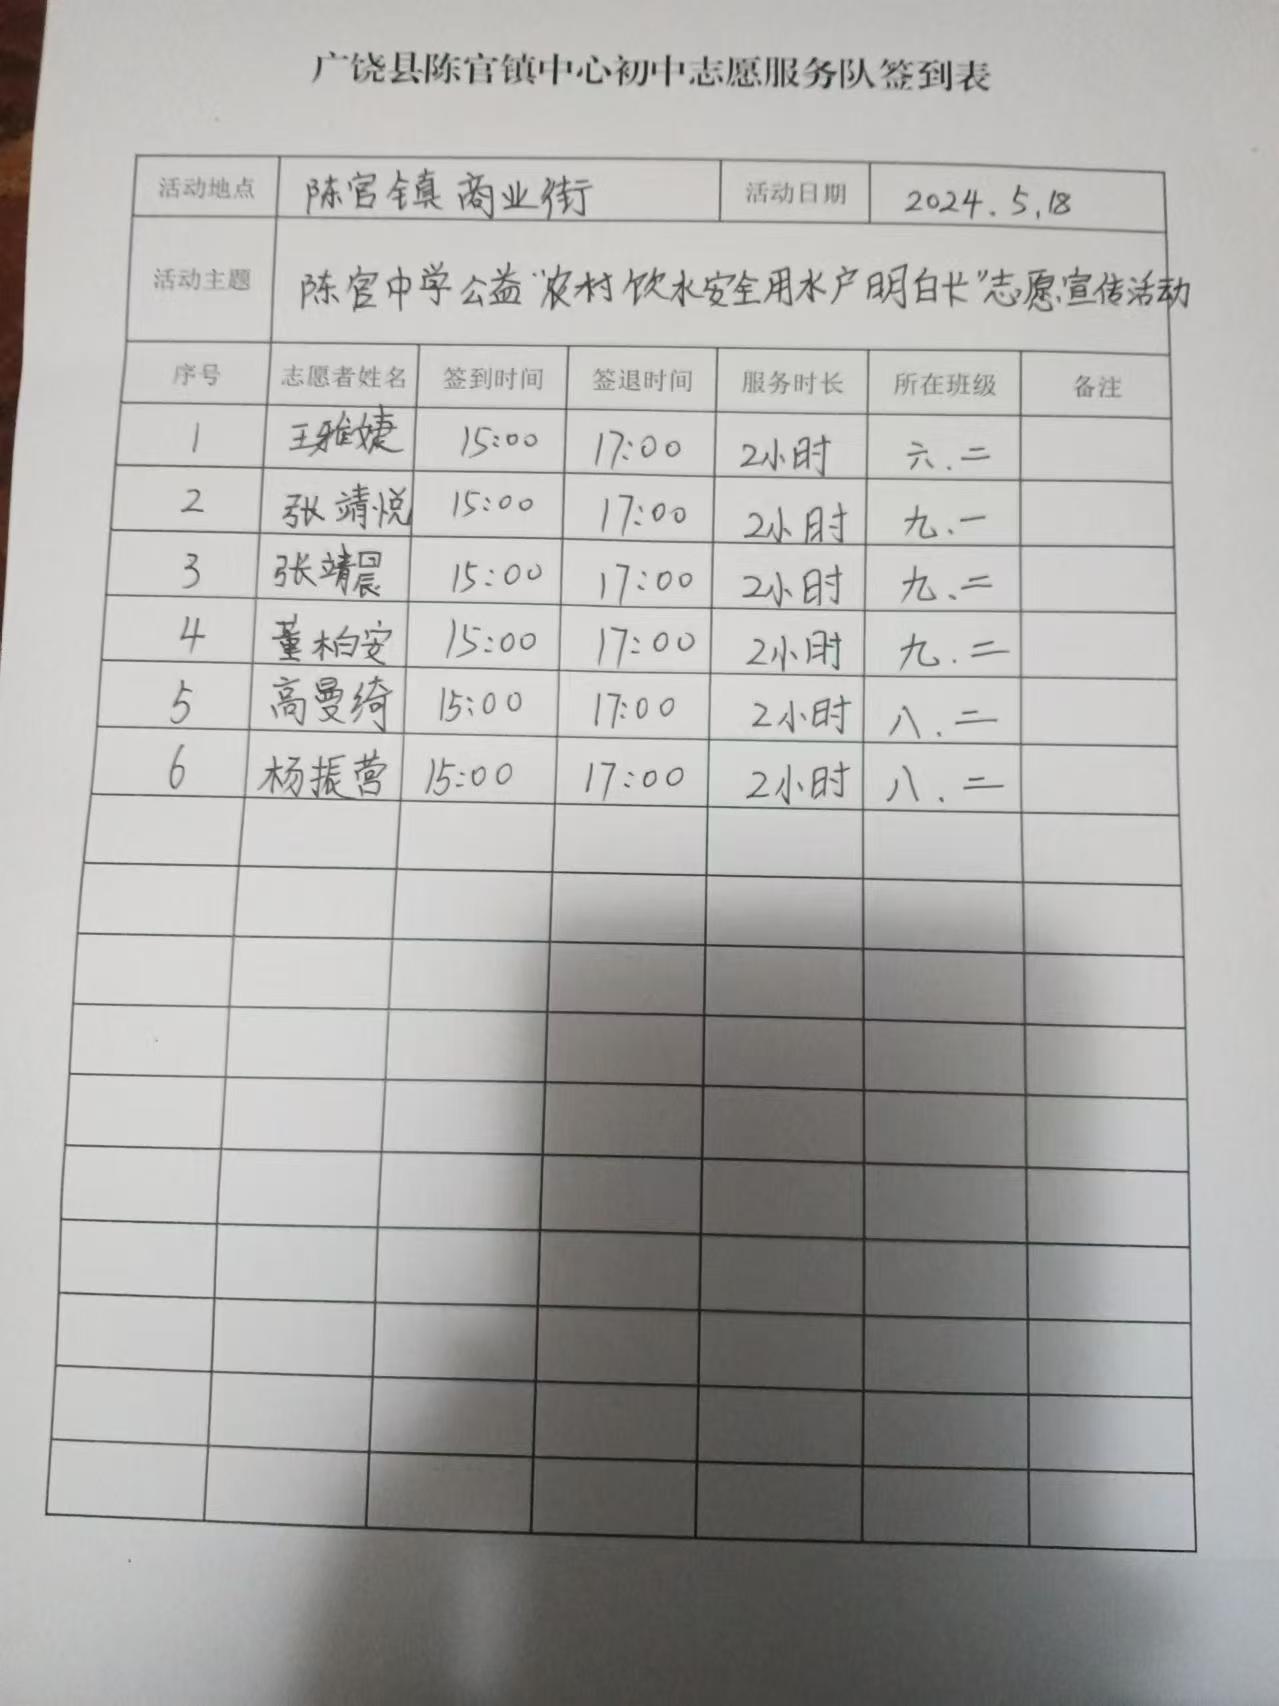 广饶县陈官镇中心初中志愿服务队签到表
活动地点 陈官镇商业街 活动日期 2024.5.18
活动主题 陈官中学公益“农村饮水安全用水户明白卡”志愿宣传活动
序号 志愿者姓名 签到时间 签退时间 服务时长 所在班级 备注
1 王雅婕 15:00 17:00 2小时 六.二
2 张靖悦 15:00 17:00 2小时 九.一
3 张靖晨 15:00 17:00 2小时 九.二
4 董柏安 15:00 17:00 2小时 九.二
5 高曼绮 15:00 17:00 2小时 八.二
6 杨振营 15:00 17:00 2小时 八.二